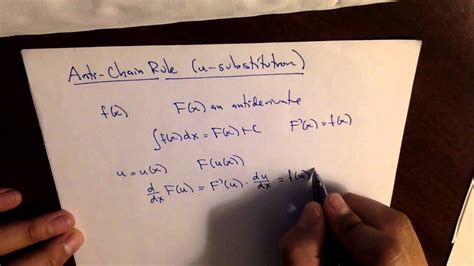 Anti-Chain Rule (u-substitution)
f(x) F(x) an antiderivative
∫f(x)dx = F(x)+C F'(x) = f(x)
u = u(x) F(u(x))
d/dx F(u) = F'(u) · du/dx = f(u)